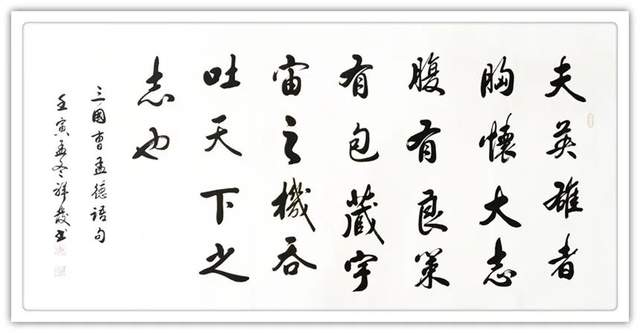 夫英雄者
胸懷大志
腹有良策
有包藏宇
宙之機吞
吐天下之
志也
三國曹孟德語句
壬寅孟冬祥發书